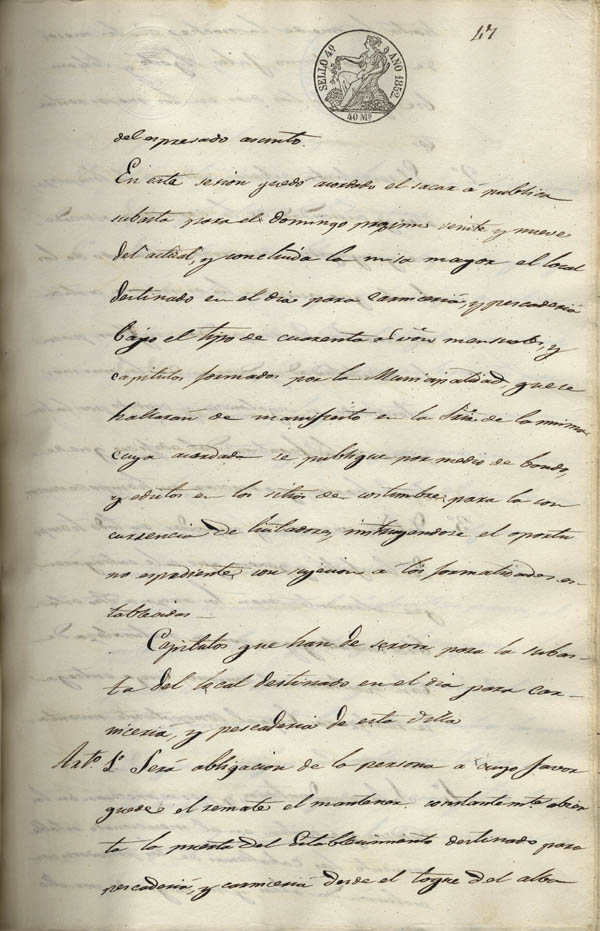 47
SELLO 4º AÑO 1852.
40 Ms
del espresado asunto.
En este sesion quedó acordado el sacar á publica
subasta para el domingo procsimo veinte y nueve
del actual, y concluida la misa mayor el local
destinado en el dia para carniceriá, y pescaderiá
bajo el tipo de cuarenta rs von mensuales, y
capitulos formados por la Municipalidad, que se
hallarán de manifiesto en la Sria de la misma
cuya acordada se publique por medio de bando,
y edictos en los sitios de costumbre para la con
currencia de licitadores, instruyendose el oportu
no espediente con sujecion a las formalidades es-
tablecidas.
Capitulos que han de servir para la subas-
ta del local destinado en el dia para car-
niceriá, y pescaderia de esta Villa
Arto. 1º Será obligacion de la persona a cuyo favor
quede el remate el mantener constantemte abier
ta la puerta del Establecimiento destinado para
pescaderiá, y carniceriá desde el toque del alba